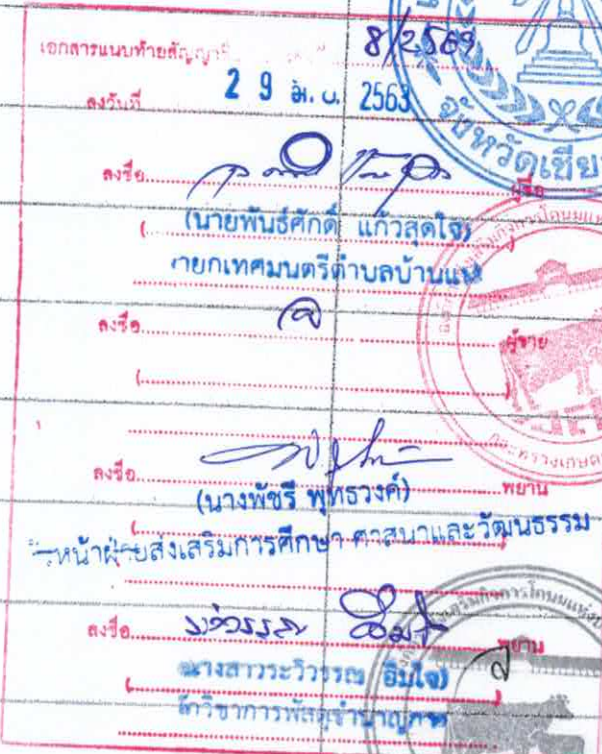 เอกสารแนบท้ายสัญญา 8/2569
ลงวันที่ 29 มิ.ย. 2563
จังหวัดเชีย
ลงชื่อ ผู้ซื้อ
(นายพันธ์ศักดิ์ แก้วสุดใจ)
นายกเทศมนตรีตำบลบ้านแม
ลงชื่อ ผู้ขาย
( )
ลงชื่อ พยาน
(นางพัชรี พุทธวงค์)
หน้าฝ่ายส่งเสริมการศึกษา ศาสนาและวัฒนธรรม
ลงชื่อ พยาน
(นางสาวระวิวรรณ อิ่มใจ)
นักวิชาการพัสดุชำนาญการ